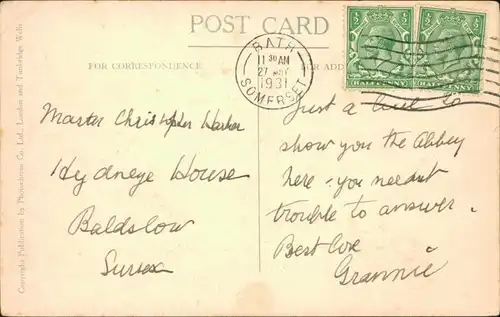 POST CARD
BATH
11 30 AM
27 MAY
1931
SOMERSET
½ ½ ½ ½
HALFPENNY HALFPENNY
FOR CORRESPONDENCE
FOR ADD
Copyright Publication by Photochrom Co. Ltd., London and Tunbridge Wells
Master Christopher
Hydneye House
Baldslow
Sussex
Just a to
show you the Abbey
here - you neednt
trouble to answer.
Best love
Grannie